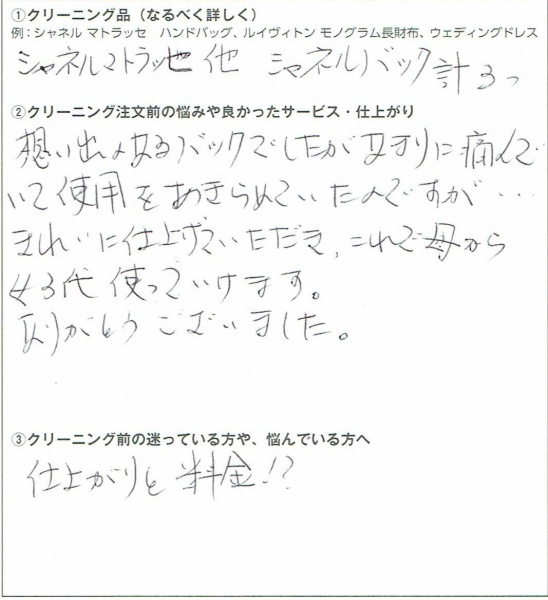 ①クリーニング品（なるべく詳しく）
例：シャネル マトラッセ　ハンドバッグ、ルイヴィトン モノグラム長財布、ウェディングドレス
シャネルマトラッセ 他 シャネルバック 計3つ
②クリーニング注文前の悩みや良かったサービス・仕上がり
想い出のあるバックでしたがあまりに痛んで
いて使用をあきらめていたのですが…
きれいに仕上げていただき、これで母から
女3代 使っていけます。
ありがとうございました。
③クリーニング前の迷っている方や、悩んでいる方へ
仕上がりと 料金!?